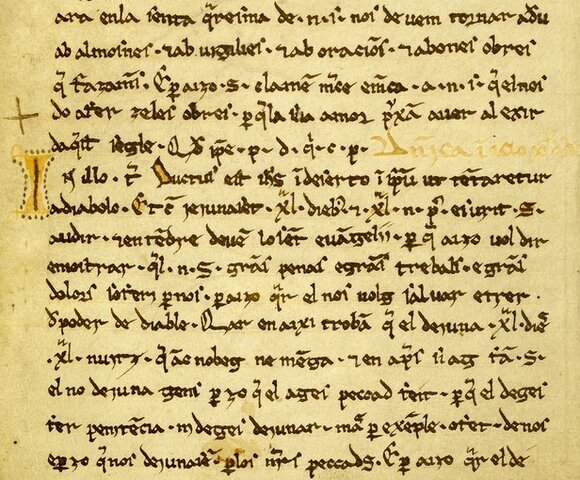 ara en la senta q̄resma de · n · s · nos devem tornar a dū
ab almosnes · ⁊ ab vigilies · ⁊ ab oracions · ⁊ ab ones obres
q̄ fazam̄ · E p̄ aizo · S · clamem m̄ce · a · n · s · q̄l nos
do a fer zeles obres · p̄ q̄ la sua amor puxā aver al exir
daq̄st segle · Qd ip̄e · p · d · q̄ · c · p ·
In illo · t̄ Ductus est ih̄s ī deserto ut tēptaretur
a diabolo · Et cū jejunasset · xl · dieb; ⁊ · xl · n · p̄ · esurit · S ·
audir · ⁊ entēdre devē lo sēt evāgelii · p̄ q̄ aizo vol dir
e mostrar · q̄l · n · S · grās penas e grās trebals · e grās
dolors soferi p̄ nos · p̄ aizo q̄r el nos volg salvar e trer ·
d poder de diable · Qar en aixi trobā q̄ el dejuna · xl · dies
· xl · nuitz · q̄ āc no beg ne mēga · ⁊ en ap̄s si ag fā · S ·
el no dejuna gens p̄ zo q̄ el ages peccad feit · p̄ q̄ el deges
fer penitēcia · ni deges dejunar · mas p̄ exēple · o fet · de nos
e p̄ zo q̄ nos dejunasē · p̄ los nr̄es peccads · E p̄ aizo q̄r el de